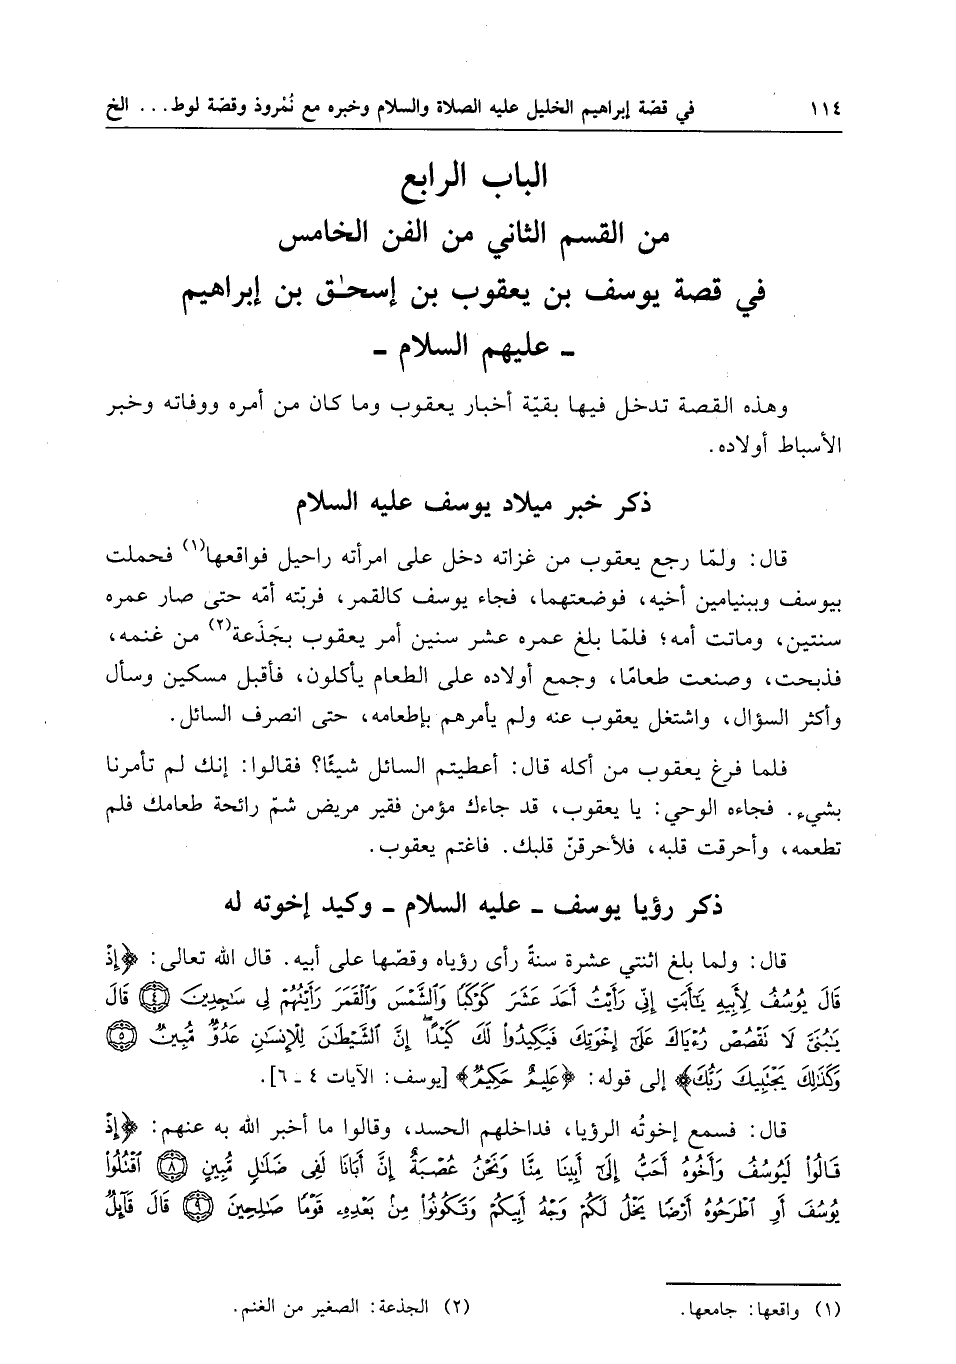 ١١٤ في قصّة إبراهيم الخليل عليه الصلاة والسلام وخبره مع نُمْروذ وقصّة لوط... الخ
الباب الرابع
من القسم الثاني من الفن الخامس
في قصة يوسف بن يعقوب بن إسحٰق بن إبراهيم
ـ عليهم السلام ـ
وهذه القصة تدخل فيها بقيّة أخبار يعقوب وما كان من أمره ووفاته وخبر
الأسباط أولاده.
ذكر خبر ميلاد يوسف عليه السلام
قال: ولمّا رجع يعقوب من غزاته دخل على امرأته راحيل فواقعها(١) فحملت
بيوسف وببنيامين أخيه، فوضعتهما، فجاء يوسف كالقمر، فربّته أمّه حتى صار عمره
سنتين، وماتت أمه؛ فلمّا بلغ عمره عشر سنين أمر يعقوب بجَذَعة(٢) من غنمه،
فذبحت، وصنعت طعامًا، وجمع أولاده على الطعام يأكلون، فأقبل مسكين وسأل
وأكثر السؤال، واشتغل يعقوب عنه ولم يأمرهم بإطعامه، حتى انصرف السائل.
فلما فرغ يعقوب من أكله قال: أعطيتم السائل شيئًا؟ فقالوا: إنك لم تأمرنا
بشيء. فجاءه الوحي: يا يعقوب، قد جاءك مؤمن فقير مريض شمّ رائحة طعامك فلم
تطعمه، وأحرقت قلبه، فلأحرقنّ قلبك. فاغتم يعقوب.
ذكر رؤيا يوسف ـ عليه السلام ـ وكيد إخوته له
قال: ولما بلغ اثنتي عشرة سنةً رأى رؤياه وقصّها على أبيه. قال الله تعالى: ﴿إِذْ
قَالَ يُوسُفُ لِأَبِيهِ يَٰٓأَبَتِ إِنِّى رَأَيْتُ أَحَدَ عَشَرَ كَوْكَبًا وَٱلشَّمْسَ وَٱلْقَمَرَ رَأَيْتُهُمْ لِى سَٰجِدِينَ ٤ قَالَ
يَٰبُنَىَّ لَا تَقْصُصْ رُءْيَاكَ عَلَىٰٓ إِخْوَتِكَ فَيَكِيدُوا۟ لَكَ كَيْدًا ۖ إِنَّ ٱلشَّيْطَٰنَ لِلْإِنسَٰنِ عَدُوٌّ مُّبِينٌ ٥
وَكَذَٰلِكَ يَجْتَبِيكَ رَبُّكَ﴾ إلى قوله: ﴿عَلِيمٌ حَكِيمٌ﴾ [يوسف: الآيات ٤ ـ ٦].
قال: فسمع إخوتُه الرؤيا، فداخلهم الحسد، وقالوا ما أخبر الله به عنهم: ﴿إِذْ
قَالُوا۟ لَيُوسُفُ وَأَخُوهُ أَحَبُّ إِلَىٰٓ أَبِينَا مِنَّا وَنَحْنُ عُصْبَةٌ إِنَّ أَبَانَا لَفِى ضَلَٰلٍ مُّبِينٍ ٨ ٱقْتُلُوا۟
يُوسُفَ أَوِ ٱطْرَحُوهُ أَرْضًا يَخْلُ لَكُمْ وَجْهُ أَبِيكُمْ وَتَكُونُوا۟ مِنۢ بَعْدِهِۦ قَوْمًا صَٰلِحِينَ ٩ قَالَ قَآئِلٌ
(١) واقعها: جامعها. (٢) الجذعة: الصغير من الغنم.